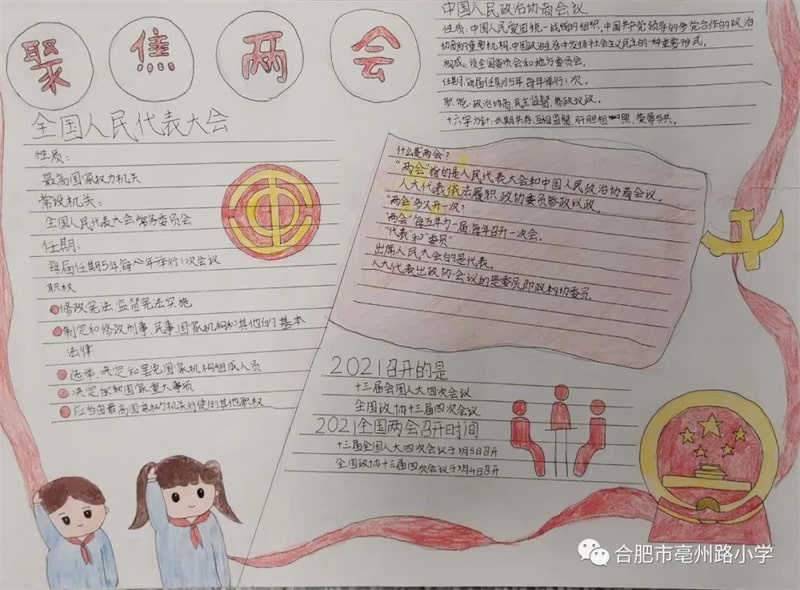 聚焦两会
全国人民代表大会
性质:
最高国家权力机关
常设机关:
全国人民代表大会常务委员会
任期:
每届任期5年每年举行1次会议
职权
修改宪法,监督宪法实施
制定和修改刑事、民事、国家机构和其他的基本
法律
选举、决定和罢免国家机构组成人员
决定国家重大事项
应当由最高国家权力机关行使的其他职权
中国人民政治协商会议
性质:中国人民爱国统一战线的组织,中国共产党领导的多党合作的政治
协商的重要机构,中国政治生活中发扬社会主义民主的一种重要形式。
构成:设全国委员会和地方委员会。
任期:每届任期5年,每年举行1次。
职能:政治协商,民主监督,参政议政。
十六字方针:长期共存,互相监督,肝胆相照,荣辱与共。
什么是"两会"?
"两会"指的是人民代表大会和中国人民政治协商会议。
人大代表依法履职,政协委员参政议政。
"两会"多久开一次?
"两会"每五年为一届,每年召开一次会。
"代表"和"委员"
出席人民大会的是代表。
人大代表出政协会议的是委员即政协委员
2021召开的是
十三届全国人大四次会议
全国政协十三届四次会议
2021全国两会召开时间
十三届全国人大四次会议于3月5日召开
全国政协十三届四次会议于3月4日召开
合肥市亳州路小学